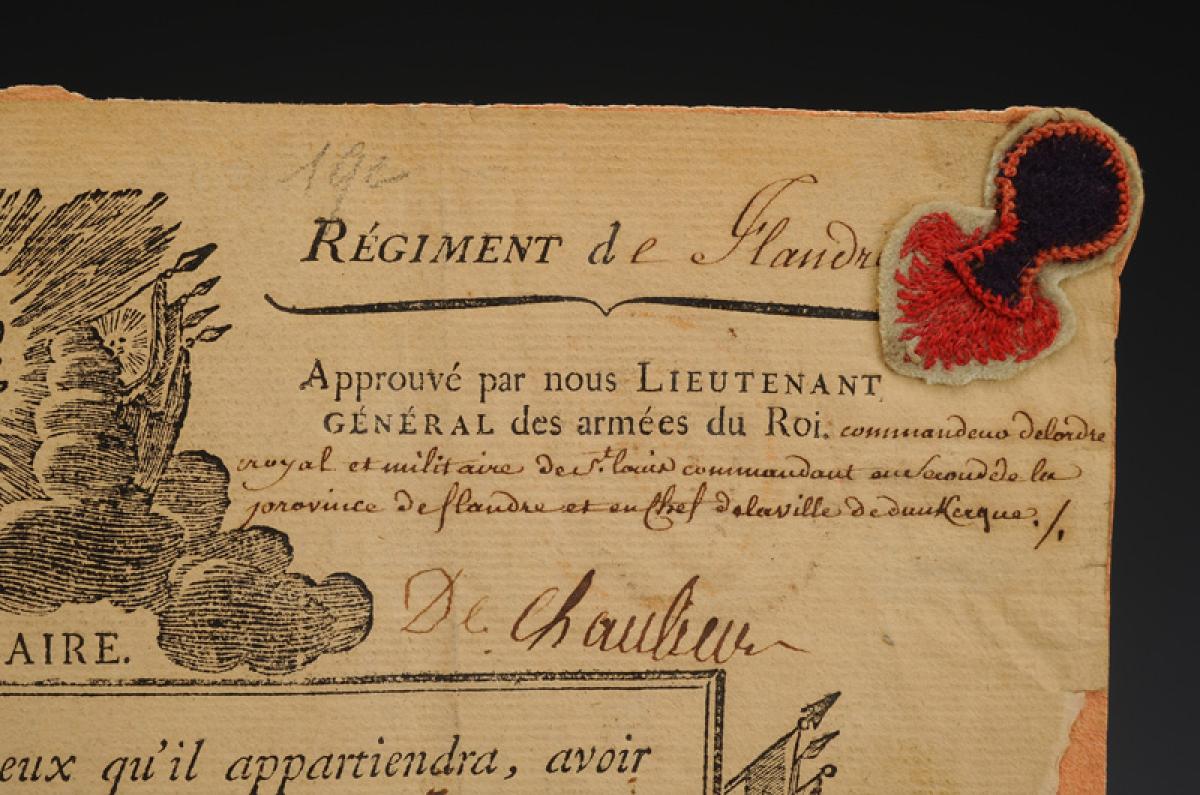 19e
RÉGIMENT de Flandre
Approuvé par nous LIEUTENANT
GÉNÉRAL des armées du Roi. commandeur delordre
royal et militaire de St. louis commandant en second de la
province de flandre et en Chef delaville de dunKerque ./.
De Chaulieu
AIRE.
eux qu'il appartiendra, avoir